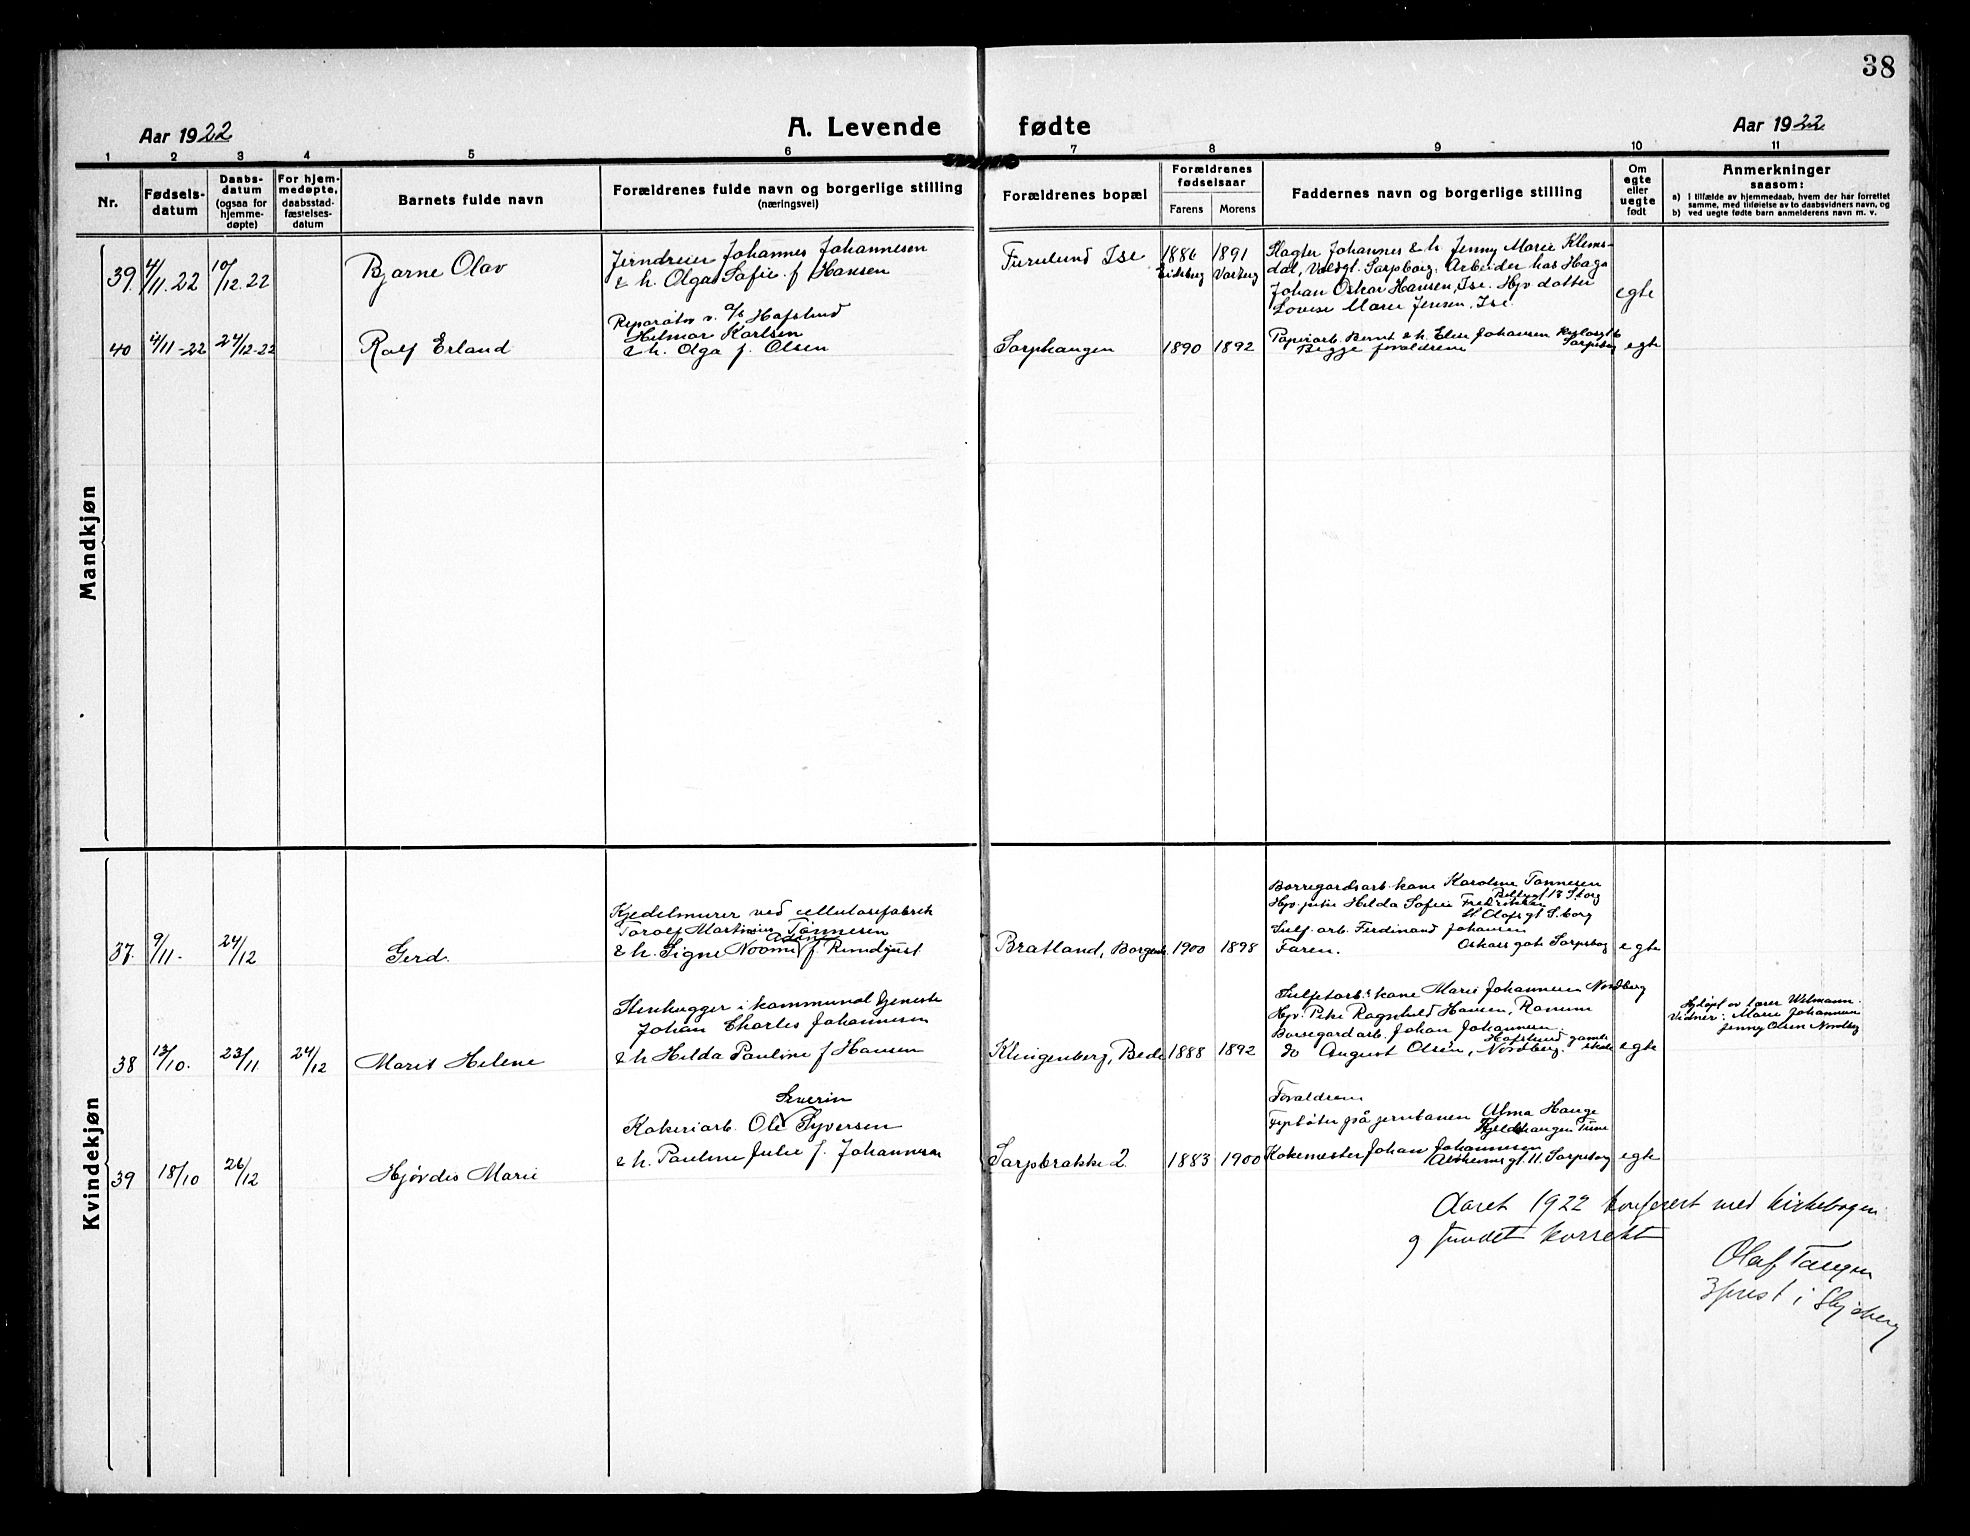 38
Aar 1922
A. Levende fødte
Aar 1922
1 2 3 4 5 6 7 8 9 10 11
Nr.
Fødsels-
datum
Daabs-
datum
(ogsaa for
hjemme-
døpte)
For hjem-
medøpte,
daabsstad-
fæstelses-
datum
Barnets fulde navn
Forældrenes fulde navn og borgerlige stilling
(næringsvei)
Forældrenes bopæl
Forældrenes
fødselsaar
Farens Morens
Faddernes navn og borgerlige stilling
Om
egte
eller
uegte
født
Anmerkninger
saasom:
a) I tilfælde av hjemmedaab, hvem der har forrettet
samme, med tilføielse av to daabsvidners navn, og
b) ved uegte fødte barn anmelderens navn m. v.
Mandkjøn
39. 4/11.22 10/12.22
Bjarne Olav
Jerndreier Johannes Johannesen
& h. Olga Sofie f. Hansen
Furulund Ise
1886 1891
Eidsberg Varteig
Slagter Johannes & h. Jenny Marie Klems-
dal, Voldgt. Sarpsborg. Arbeider hos Haga
Johan Oskar Hansen, Ise. Hjv datter
Lovise Marie Jensen, Ise.
egte
40 4/11-22 24/12-22
Ralf Erland
Reparatør v. a/s Hafslund
Helmar Karlsen
& h. Olga f. Olsen
Sarphaugen
1890 1892
Papirarb. Bernt & h. Elise Johansen
Sarpsborg
Begge forældrene
egte
Kvindekjøn
37. 9/11- 24/12
Gerd.
Kjedelmurer ved cellulosefabrik
Torolf Martinius Tønnesen
Adine
& h. Signe Noomi f. Rundqust
Bratland, Borgenh.
1900 1898
Borregaardsarb. kone Karoline Tønnesen
Hjv. pike Hilda Sofie Fredriksen
St Olafsgt S.borg
Sulf. arb. Ferdinand Johansen
Oskars gate Sarpsborg
Faren.
egte
38 13/10. 23/11 24/12
Marit Helene
Stenhugger i kommunal tjeneste
Johan Charles Johannesen
& h Hilda Pauline f Hansen
Klingenberg, Bede
1888 1892
Sulfetarb. kone Marie Johannesen Nordberg
Hjv. Pike Ragnhild Hansen, Ranum
Borregaardarb. Johan Johannesen,
Hafslund gamle skole
do August Olsen, Nordberg.
egte
Hjdøpt av lærer Wilmann.
Vidner: Marie Johannesen
Jenny Olsen Nordbg
39 18/10 26/12
Hjørdis Marie
Severin
Kokeriarb. Ole Syversen
& h. Pauline Julie f. Johannesen
Sarpsbrakke 2.
1883 1900
Forældrene
Fyrbøter på jernbanen Alma Hauge
Tune
Kokemester Johan Johannesen
11. Sarpsborg
egte
Aaret 1922 konferert med kirkebogen
og fundet korrekt
Olaf Tangen
sprest i Skjeberg